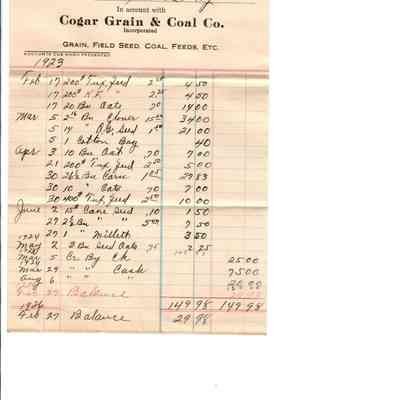 In account with
Cogar Grain & Coal Co.
Incorporated
GRAIN, FIELD SEED, COAL, FEEDS, ETC.
ACCOUNTS DUE WHEN PRESENTED
1923
Feb 17 200# Tux Feed 2.25 4 50
17 200# " 2.25 4 50
17 20 Bu Oats 70 14 00
Mar 5 Bu Clover 34 00
5 14 " Seed 1.50 21 00
5 1 Cotton Bag 40
Apr 3 10 Bu Oats 70 7 00
200# Tux Feed 2.50 5 00
30 Bu Corn 27 83
30 10 " Oats 70 7 00
30 400# Tux Feed 2.50 10 00
June 2 15# Cane Seed 10 1 50
27 Bu " " 7 50
27 1 " Millett 3 50
1924
May 2 3 Bu Seed Oats 75 2 25
Mar 5 Cr By Ck 25 00
Mar 29 " " Cash 75 00
Aug 6 " " "
Feb 27 Balance
149 98 149 98
1926
Feb 27 Balance 29 98